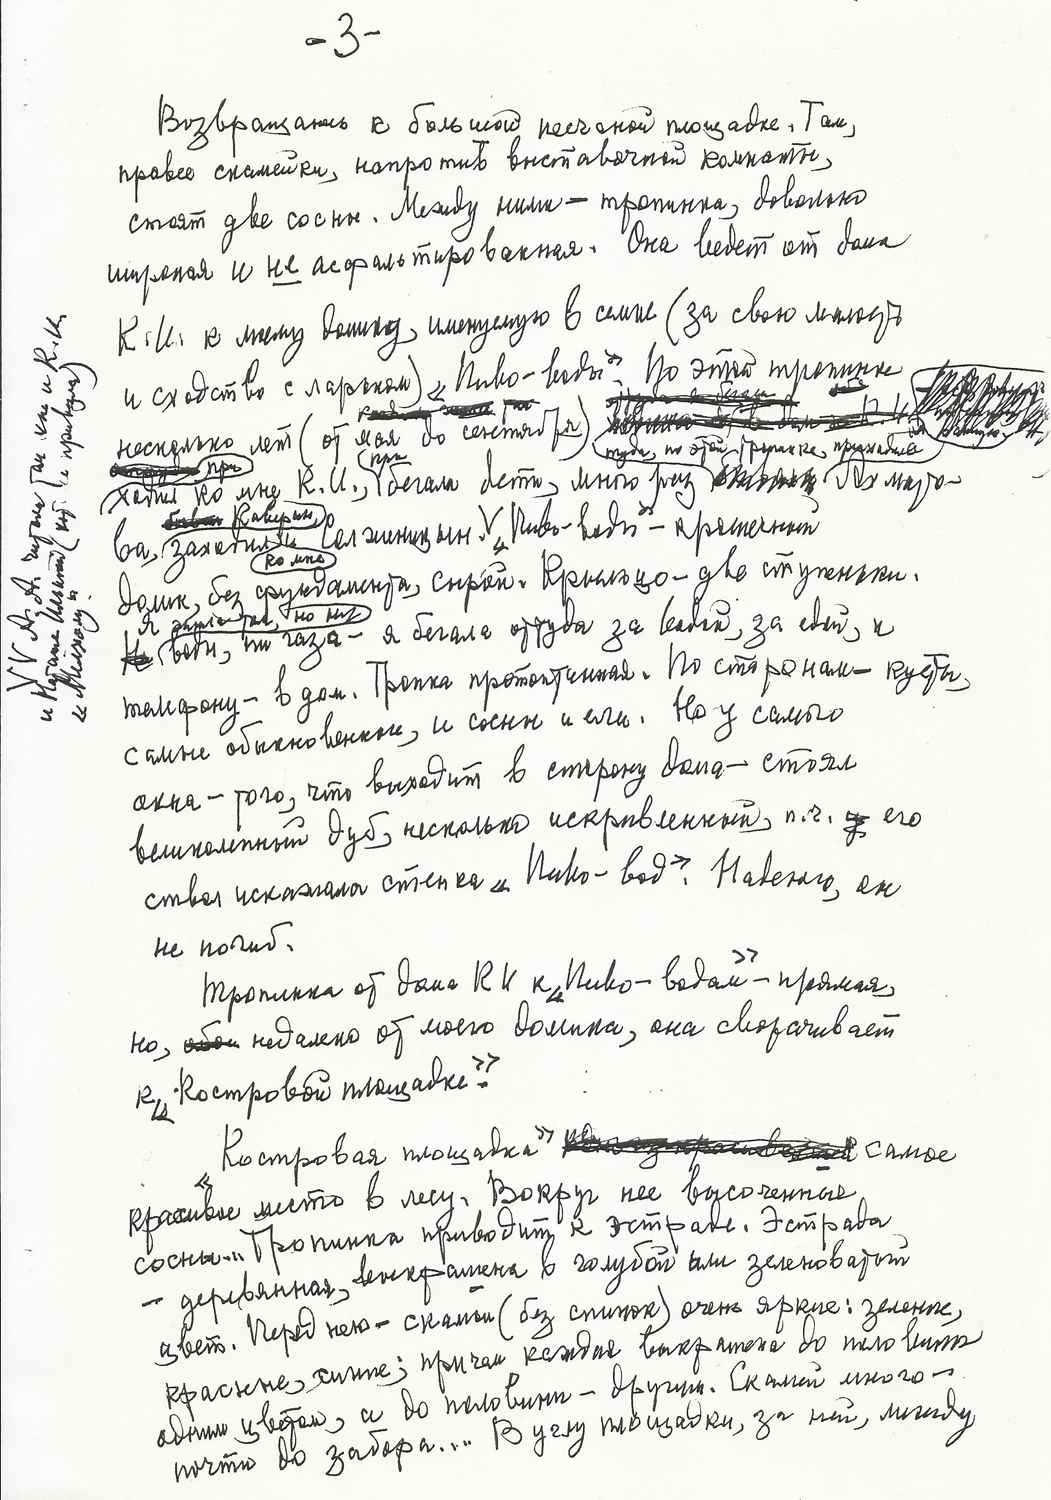 - 3 -
Возвращаюсь к большой песчаной площадке. Там,
правее скамейки, напротив выставочной комнаты,
стоят две сосны. Между ними — тропинка, довольно
широкая и не асфальтированная. Она ведет от дома
К.И. к моему домику, именуемую в семье (за свою малость
и сходство с ларьком) „Пиво-воды". По этой тропинке
несколько лет (от мая до сентября)
туда, по этой тропинке, приходила
при
ходил ко мне К.И., бегали дети, много раз Ахмато-
Каверин,
ва, заходил и Солженицын. V „Пиво-воды" — крошечный
ко мне
домик, без фундамента, сырой. Крыльцо — две ступеньки.
Я но ни
воды, ни газа — я бегала оттуда за водой, за едой, к
телефону — в дом. Тропка протоптанная. По сторонам — кусты,
самые обыкновенные, и сосны и ели. Но у самого
окна — того, что выходит в сторону дома — стоял
великолепный дуб, несколько искривленный, п.ч. его
ствол искажала стенка „Пиво-вод". Надеюсь, он
не погиб.
Тропинка от дома КИ к „Пиво-водам" — прямая,
но, недалеко от моего домика, она сворачивает
к „Костровой площадке".
„Костровая площадка" самое
красивое место в лесу. Вокруг нее высоченные
сосны... Тропинка приводит к эстраде. Эстрада
— деревянная, выкрашена в голубой или зеленоватый
цвет. Перед нею — скамьи (без спинок) очень яркие: зеленые,
красные, синие; причем каждая выкрашена до половины
одним цветом, а до половины — другим. Скамей много —
почти до забора.... В углу площадки, за ней, между
VV А.А. читала там мне и К.И.
и Наташе Ильиной